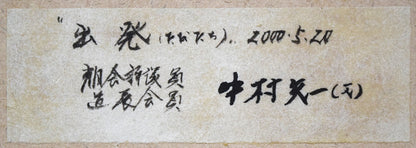 "出発(たびだち). 2000.5.20
朔会評議員
道展会員 中村矢一(之)